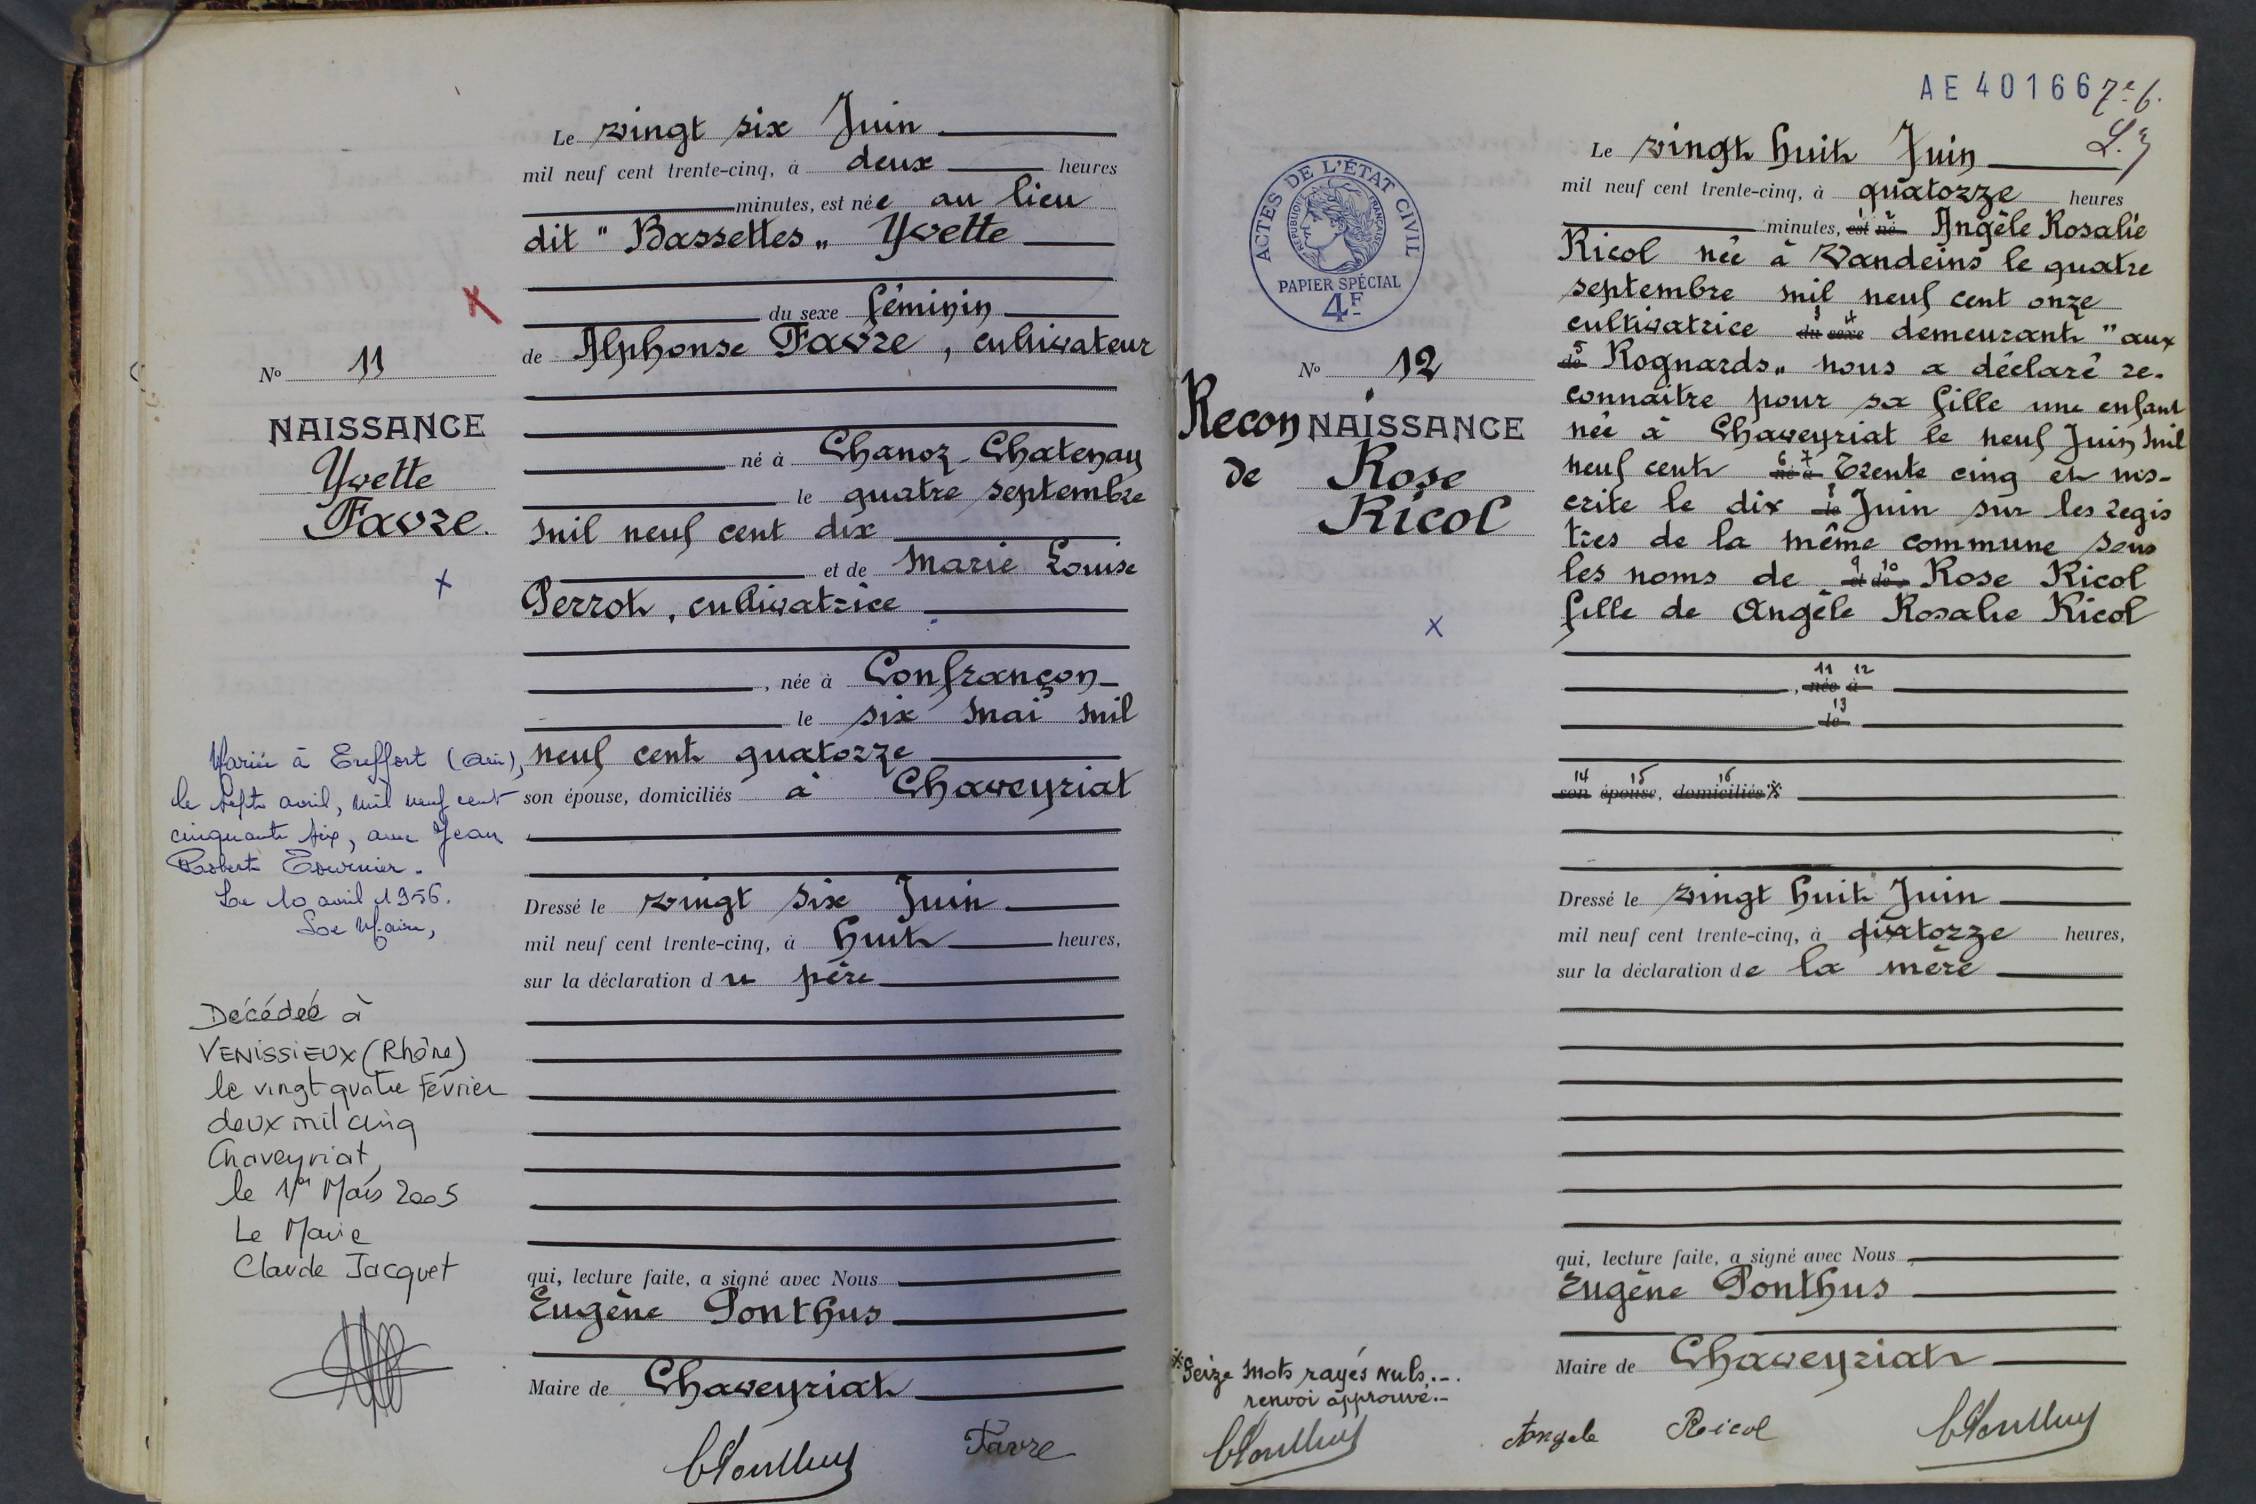 Le vingt six Juin
mil neuf cent trente-cinq, à deux heures
minutes, est née au lieu
dit " Bassettes „ Yvette
du sexe féminin
de Alphonse Favre, cultivateur
né à Chanoz-Chatenay
le quatre septembre
mil neuf cent dix
et de Marie Louise
Perrot, cultivatrice
, née à Confrançon
le six mai mil
neuf cent quatorze
son épouse, domiciliés à Chaveyriat
Dressé le vingt six Juin
mil neuf cent trente-cinq, à huit heures,
sur la déclaration du père
qui, lecture faite, a signé avec Nous
Eugène Ponthus
Maire de Chaveyriat
Favre
No 11
NAISSANCE
Yvette
Favre.
Mariée à Treffort (Ain),
le sept avril, mil neuf cent
cinquante six, avec Jean
Robert Tournier.
Le 10 avril 1956.
Le Maire,
Décédée à
VENISSIEUX (Rhône)
le vingt quatre Février
deux mil cinq
Chaveyriat,
le 1er Mars 2005
Le Maire
Claude Jacquet
AE 40166
7e 6.
ACTES DE L'ÉTAT CIVIL
RÉPUBLIQUE FRANÇAISE
PAPIER SPÉCIAL
4F
No 12
ReconNAISSANCE
de Rose
Ricol
Le vingt huit Juin
mil neuf cent trente-cinq, à quatorze heures
minutes, est né Angèle Rosalie
Ricol née à Vandeins le quatre
septembre mil neuf cent onze
cultivatrice du sexe demeurant " aux
de Rognards „ nous a déclaré re-
connaitre pour sa fille une enfant
née à Chaveyriat le neuf Juin mil
neuf cent né à trente cinq et ins-
crite le dix le Juin sur les regis
tres de la même commune sous
les noms de et de Rose Ricol
fille de Angèle Rosalie Ricol
, née à
le
son épouse, domiciliés
Dressé le vingt huit Juin
mil neuf cent trente-cinq, à quatorze heures,
sur la déclaration de la mère
qui, lecture faite, a signé avec Nous
Eugène Ponthus
Maire de Chaveyriat
Seize mots rayés nuls.-.
renvoi approuvé.-
Angele Ricol